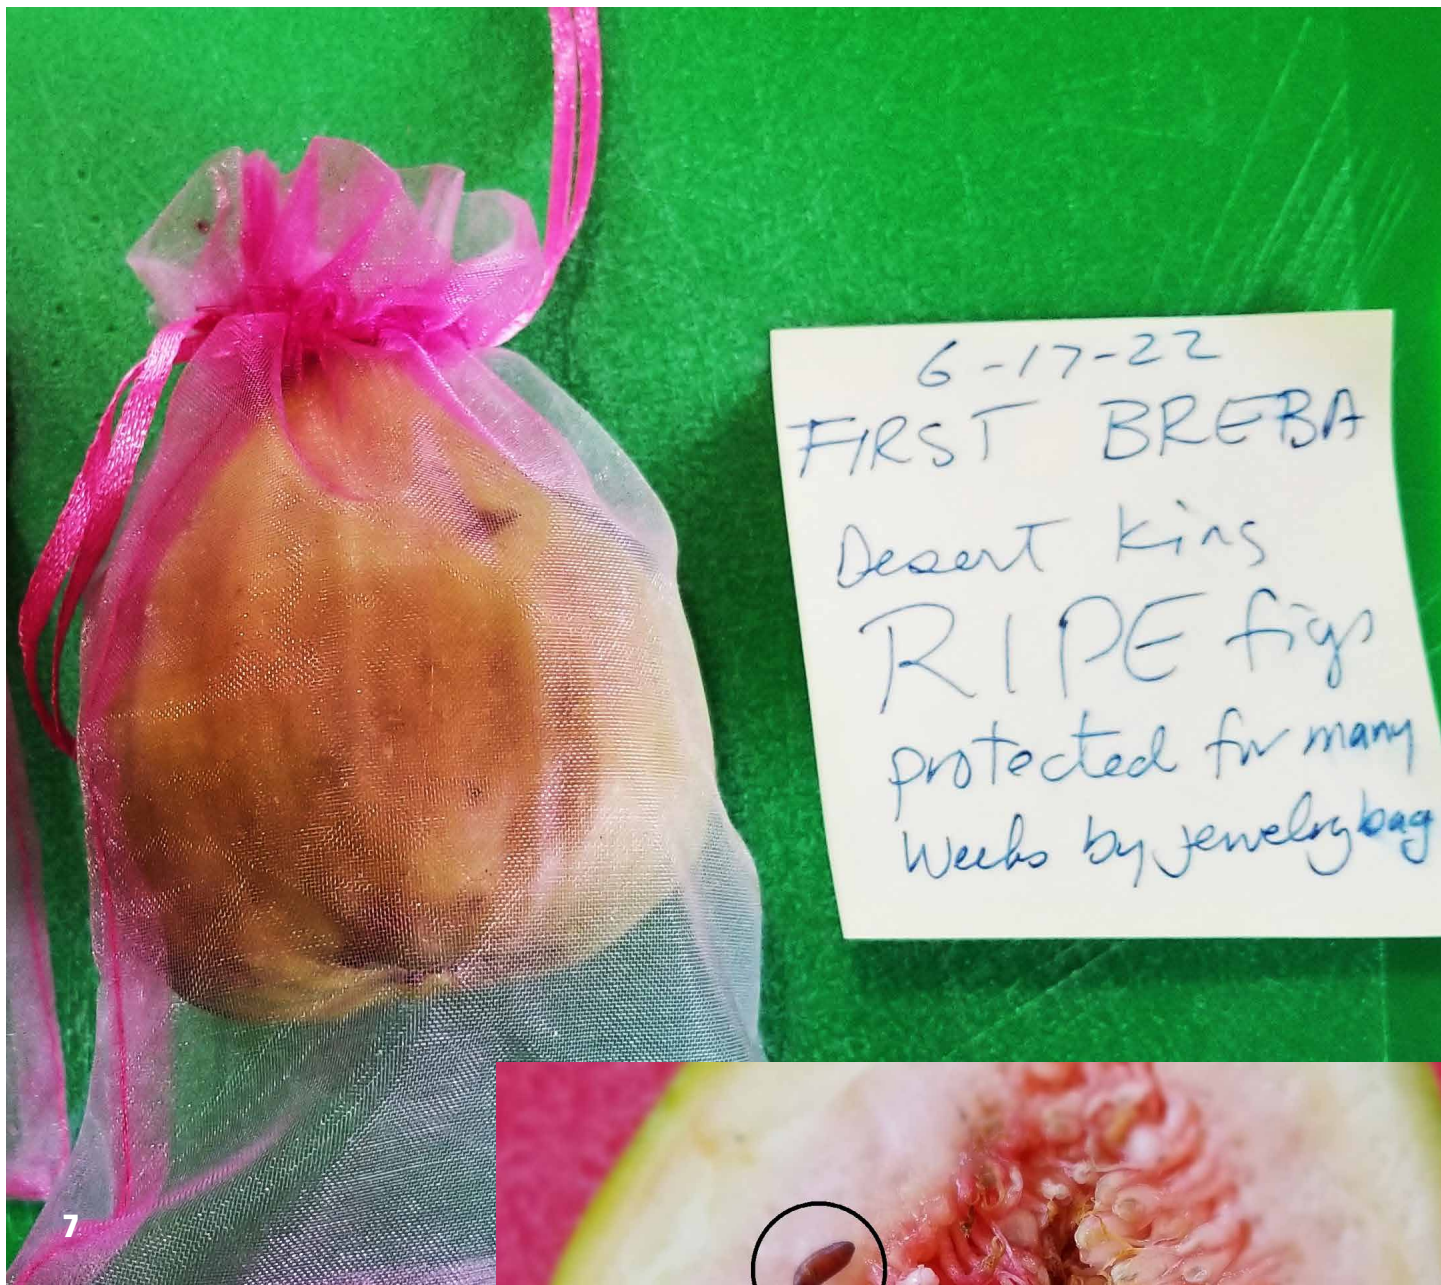 6-17-22
FIRST BREBA
Desert King
RIPE figs
protected for many
Weeks by jewelry bag
7